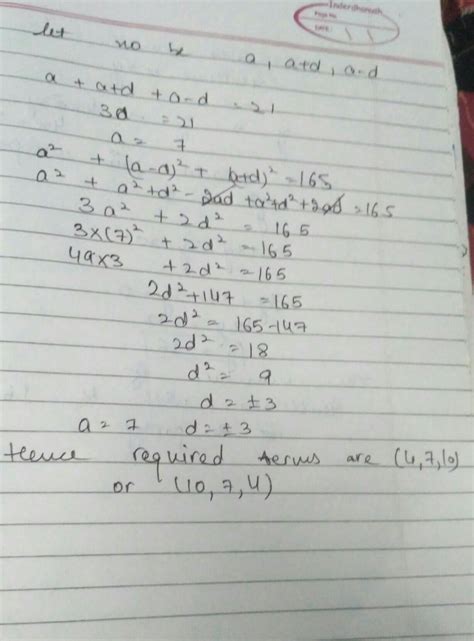 Inderdhanush
Page No.
DATE
let no be a, a+d, a-d
a + a+d + a-d = 21
3a = 21
a = 7
a² + (a-d)² + (a+d)² = 165
a² + a²+d² - 2ad + a²+d² + 2ad = 165
3a² + 2d² = 165
3×(7)² + 2d² = 165
49×3 + 2d² = 165
2d²+147 = 165
2d² = 165-147
2d² = 18
d² = 9
d = ±3
a = 7 d = ±3
Hence required terms are (4,7,10)
or (10,7,4)